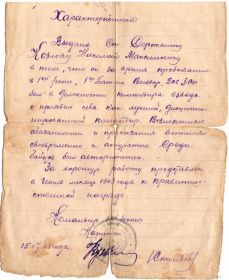 Характеристика
Выдана Ст. Сержанту
Козлову Николай Максимович
в том, что он за время пребывания
в 1ой роте, 1го Бат-на
был в должности командира взвода
проявил себя как лучший, дисципли-
нированный командир. Возложенные
обязанности и приказания выполнял
своевременно и аккуратно. Среди
бойцов имел авторитет.
За хорошую работу представлен
в июне месяце к правитель-
ственной награде.
Командир роты
Капитан
15.07